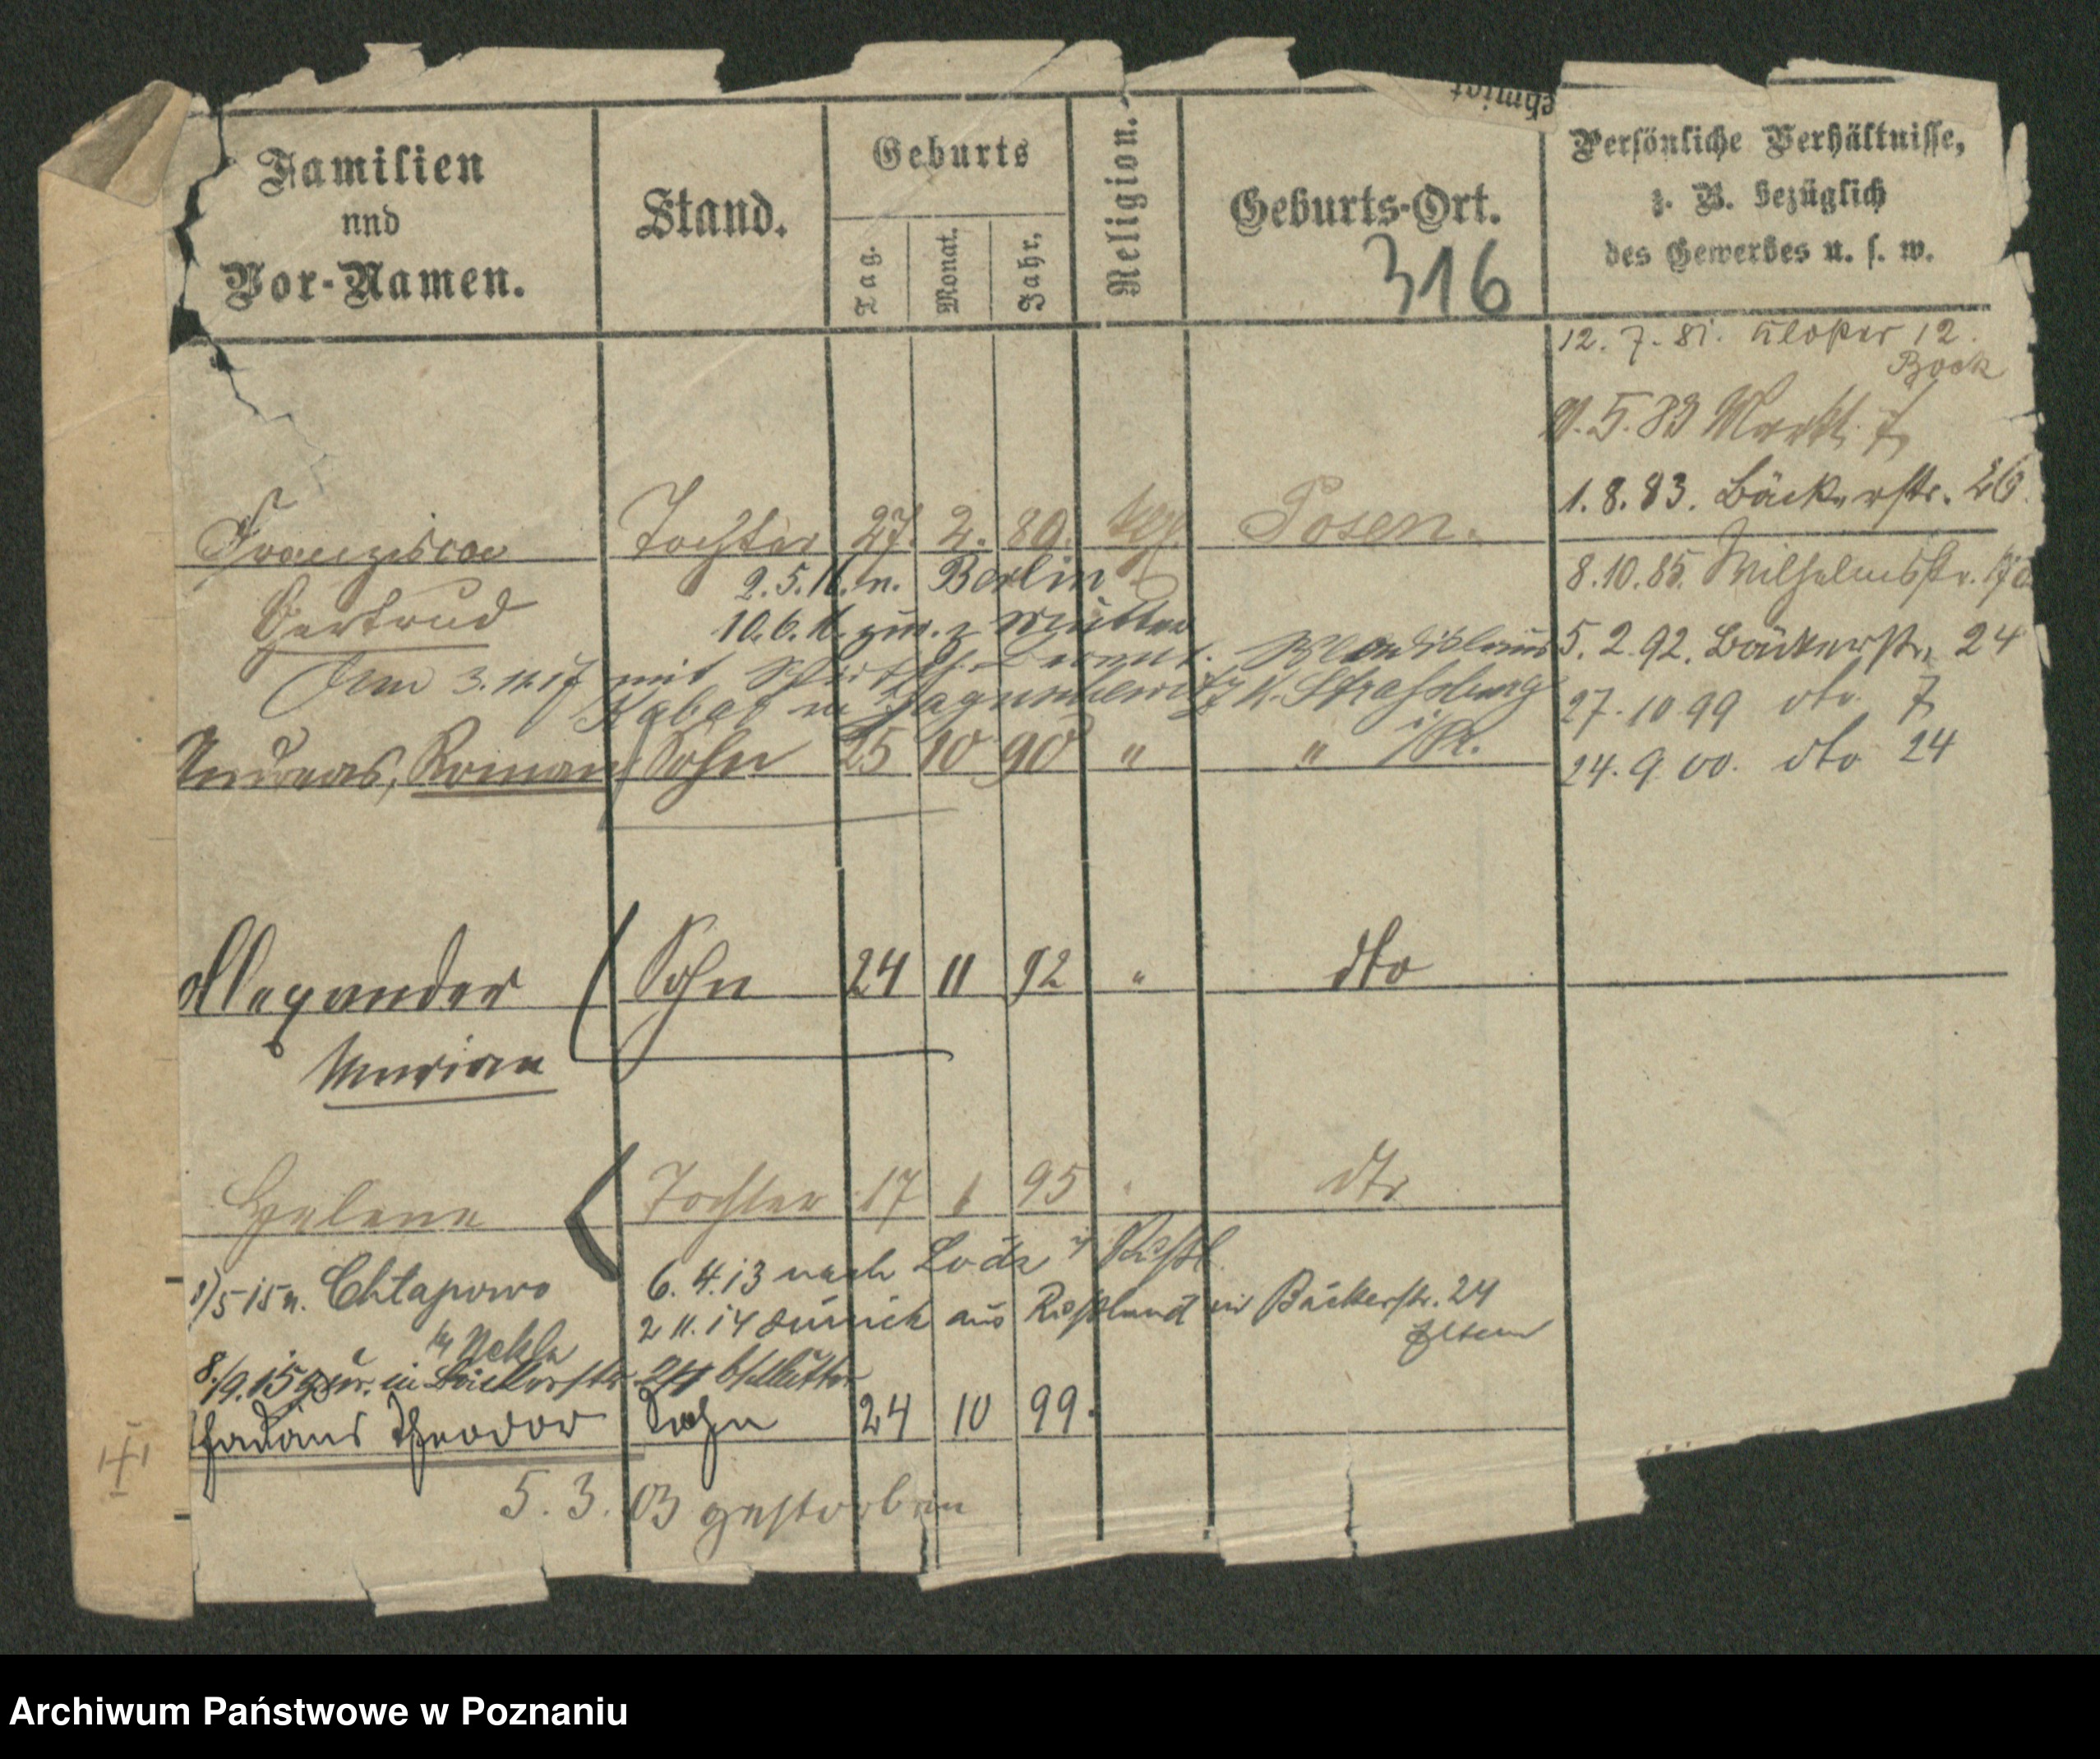 Familien
und
Vor-Namen.
Stand.
Geburts
Tag.
Monat.
Jahr.
Religion.
Geburts-Ort.
316
Persönliche Verhältnisse,
z. B. bezüglich
des Gewerbes u. s. w.
12. 7. 81. 12.
Bock
5. 83 Markt 7
1. 8. 83. Bäckerstr. 26.
Franzisca Tochter 27. 2. 89. Posen.
8. 10. 85. Wilhelmsstr.
2. 5. 16. n. Berlin
Gertrud
10. 6. 16. zur. z Mutter
5. 2. 92. Bäckerstr. 24
3. 11. 17 mit Wladislaus
in Strasburg
27. 10 99 dto 7
i/
Andreas, Roman Sohn 25 10 90 " "
24. 9. 00. dto 24
Alexander Sohn 24 11 92 " dto
Marian
Helene Tochter 17 1 95 " dto
5 15 n. Chłapowo
6. 4. 13 nach Lodz i/ Russl.
2 11. 14 zurück aus Russland in Bäckerstr. 24
Eltern
b/ Nekla
8./9. 15 zur. in Bäckerstr. 24 b/Mutter
Thadäus Theodor Sohn 24 10 99.
5. 3. 03 gestorben
Archiwum Państwowe w Poznaniu